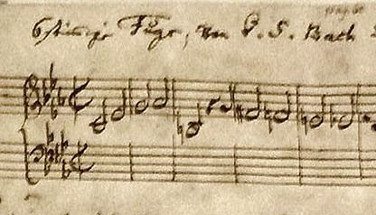 6stimmige Fuge, von J. S. Bach